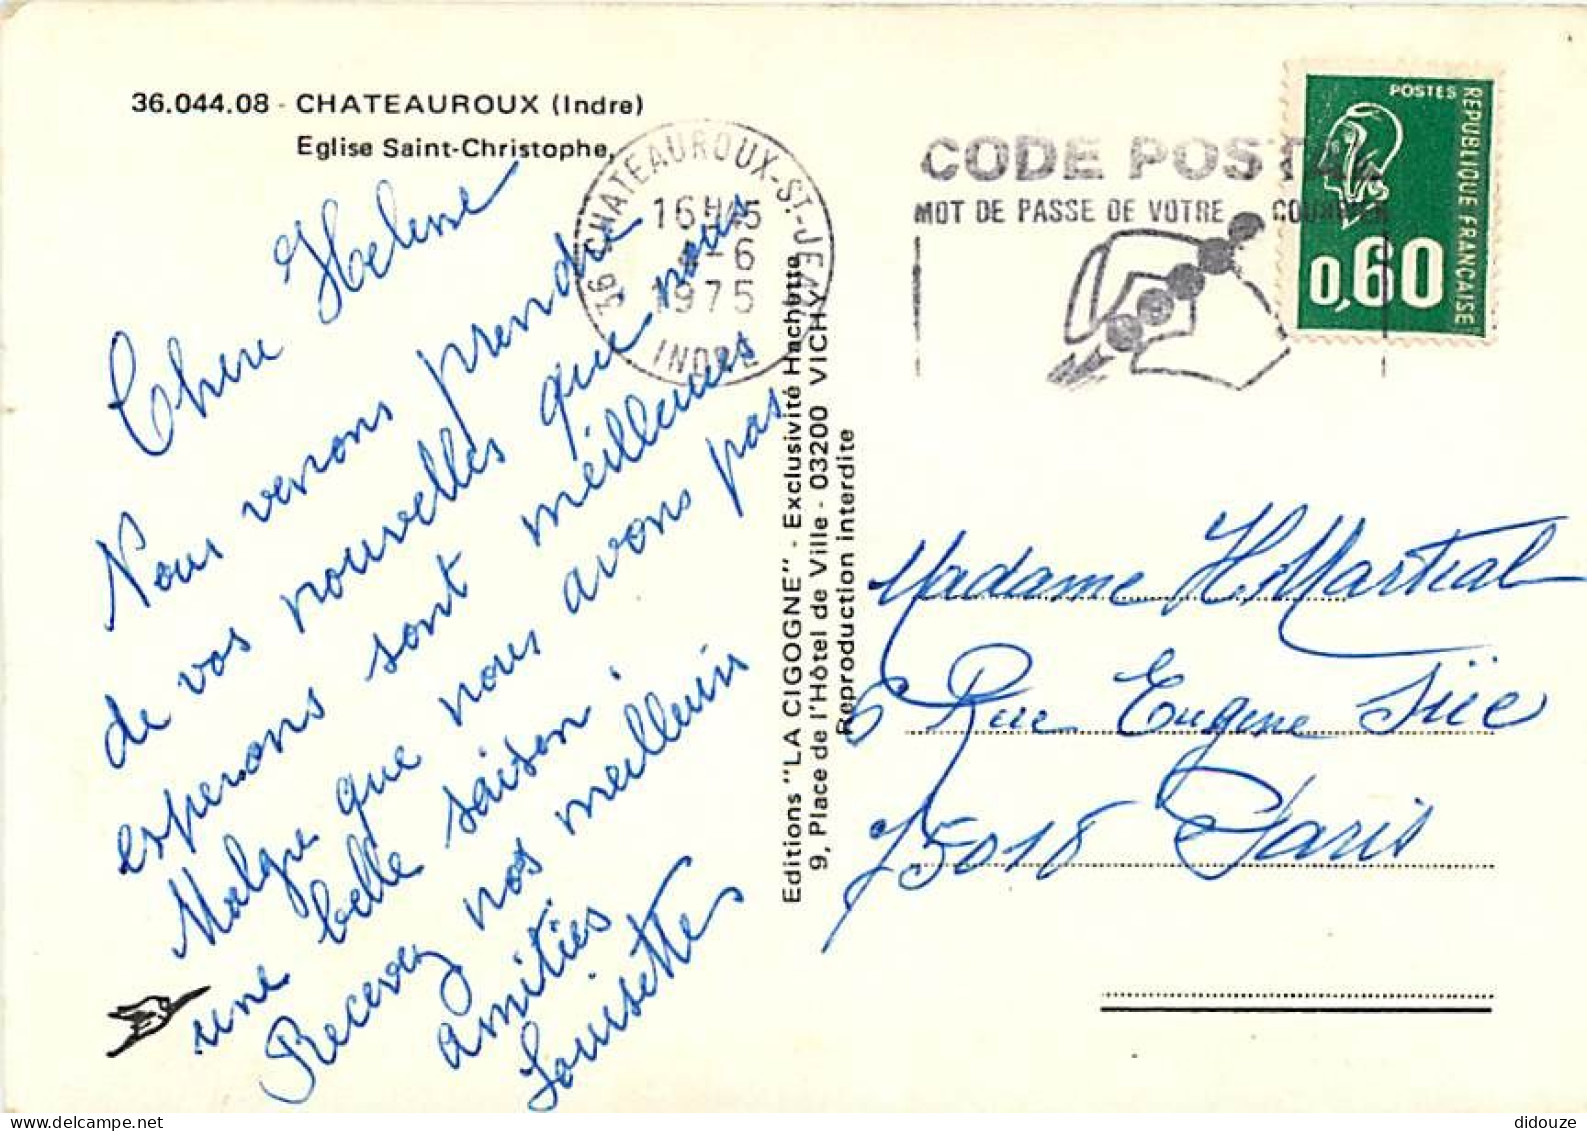 36.044.08 - CHATEAUROUX (Indre)
Eglise Saint-Christophe.
Chere Helene
Nous venons prendre
de vos nouvelles que nous
esperons sont meilleures
Malgre que nous avons pas
une belle saison.
Recevez nos meilleurs
amitiés
Louisette
Editions "LA CIGOGNE" - Exclusivité Hachette
9, Place de l'Hôtel de Ville - 03200 VICHY
Reproduction interdite
36 CHATEAUROUX-ST-JEAN
16H45
-6
1975
INDRE
CODE POSTAL
MOT DE PASSE DE VOTRE COURRIER
POSTES
REPUBLIQUE FRANÇAISE
0,60
Madame H. Martial
6 Rue Eugene Süe
75018 Paris
didouze